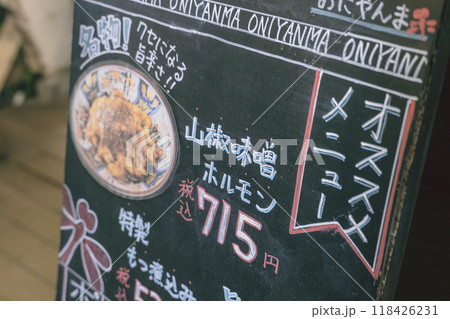 おにやんま
ONIYANMA ONIYANMA ONIYANMA ONIYAN
名物!
クセになる
旨辛さ!!
オススメ
メニュー
山椒味噌
ホルモン
税込715円
特製
もつ煮込み
税込
118426231